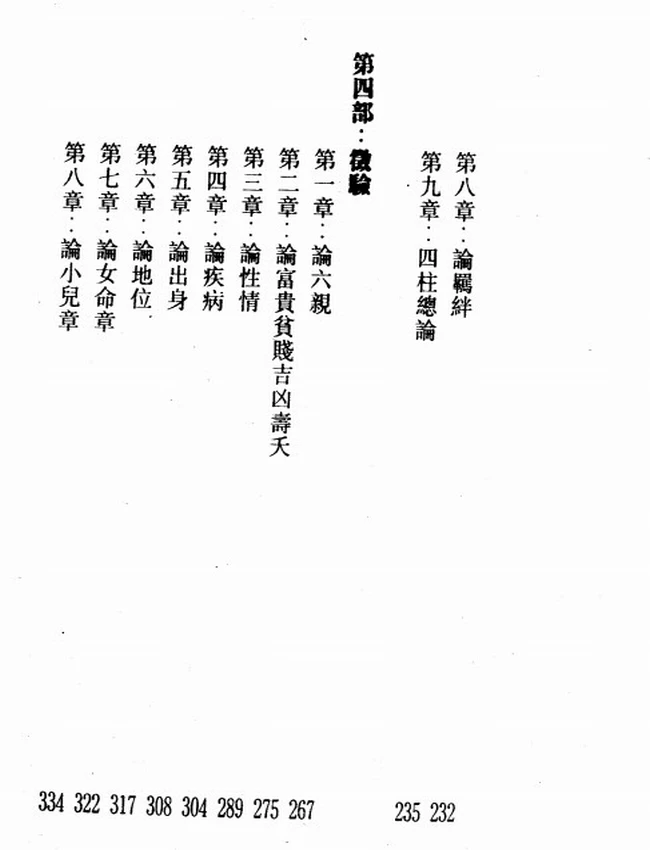 第八章：論羈絆 232
第九章：四柱總論 235
第四部：徵驗
第一章：論六親 267
第二章：論富貴貧賤吉凶壽夭 275
第三章：論性情 289
第四章：論疾病 304
第五章：論出身 308
第六章：論地位 317
第七章：論女命章 322
第八章：論小兒章 334